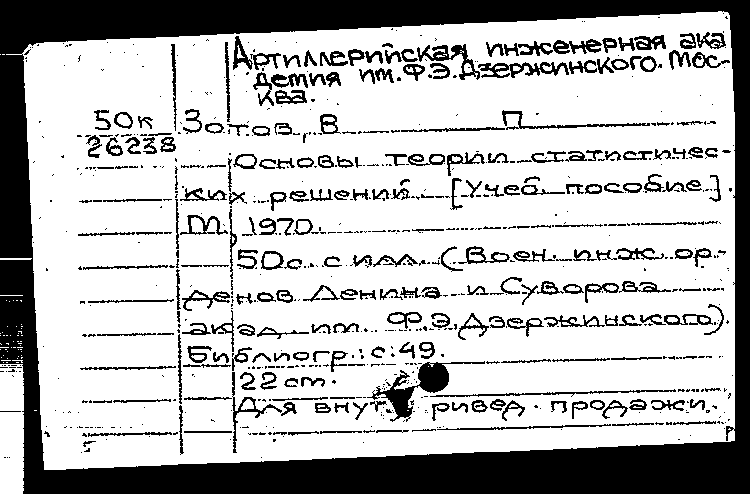 Артиллерийская инженерная ака
демия им. Ф.Э.Дзержинского. Мос-
ква.
50к Зотов, В П
26238
Основы теории статистичес-
ких решений. [Учеб. пособие].
М., 1970.
50с. с илл. (Воен. инж. ор-
денов Ленина и Суворова
акад. им. Ф.Э.Дзержинского).
Библиогр.: с.49.
22 см.
Для внут ривед. продажи.